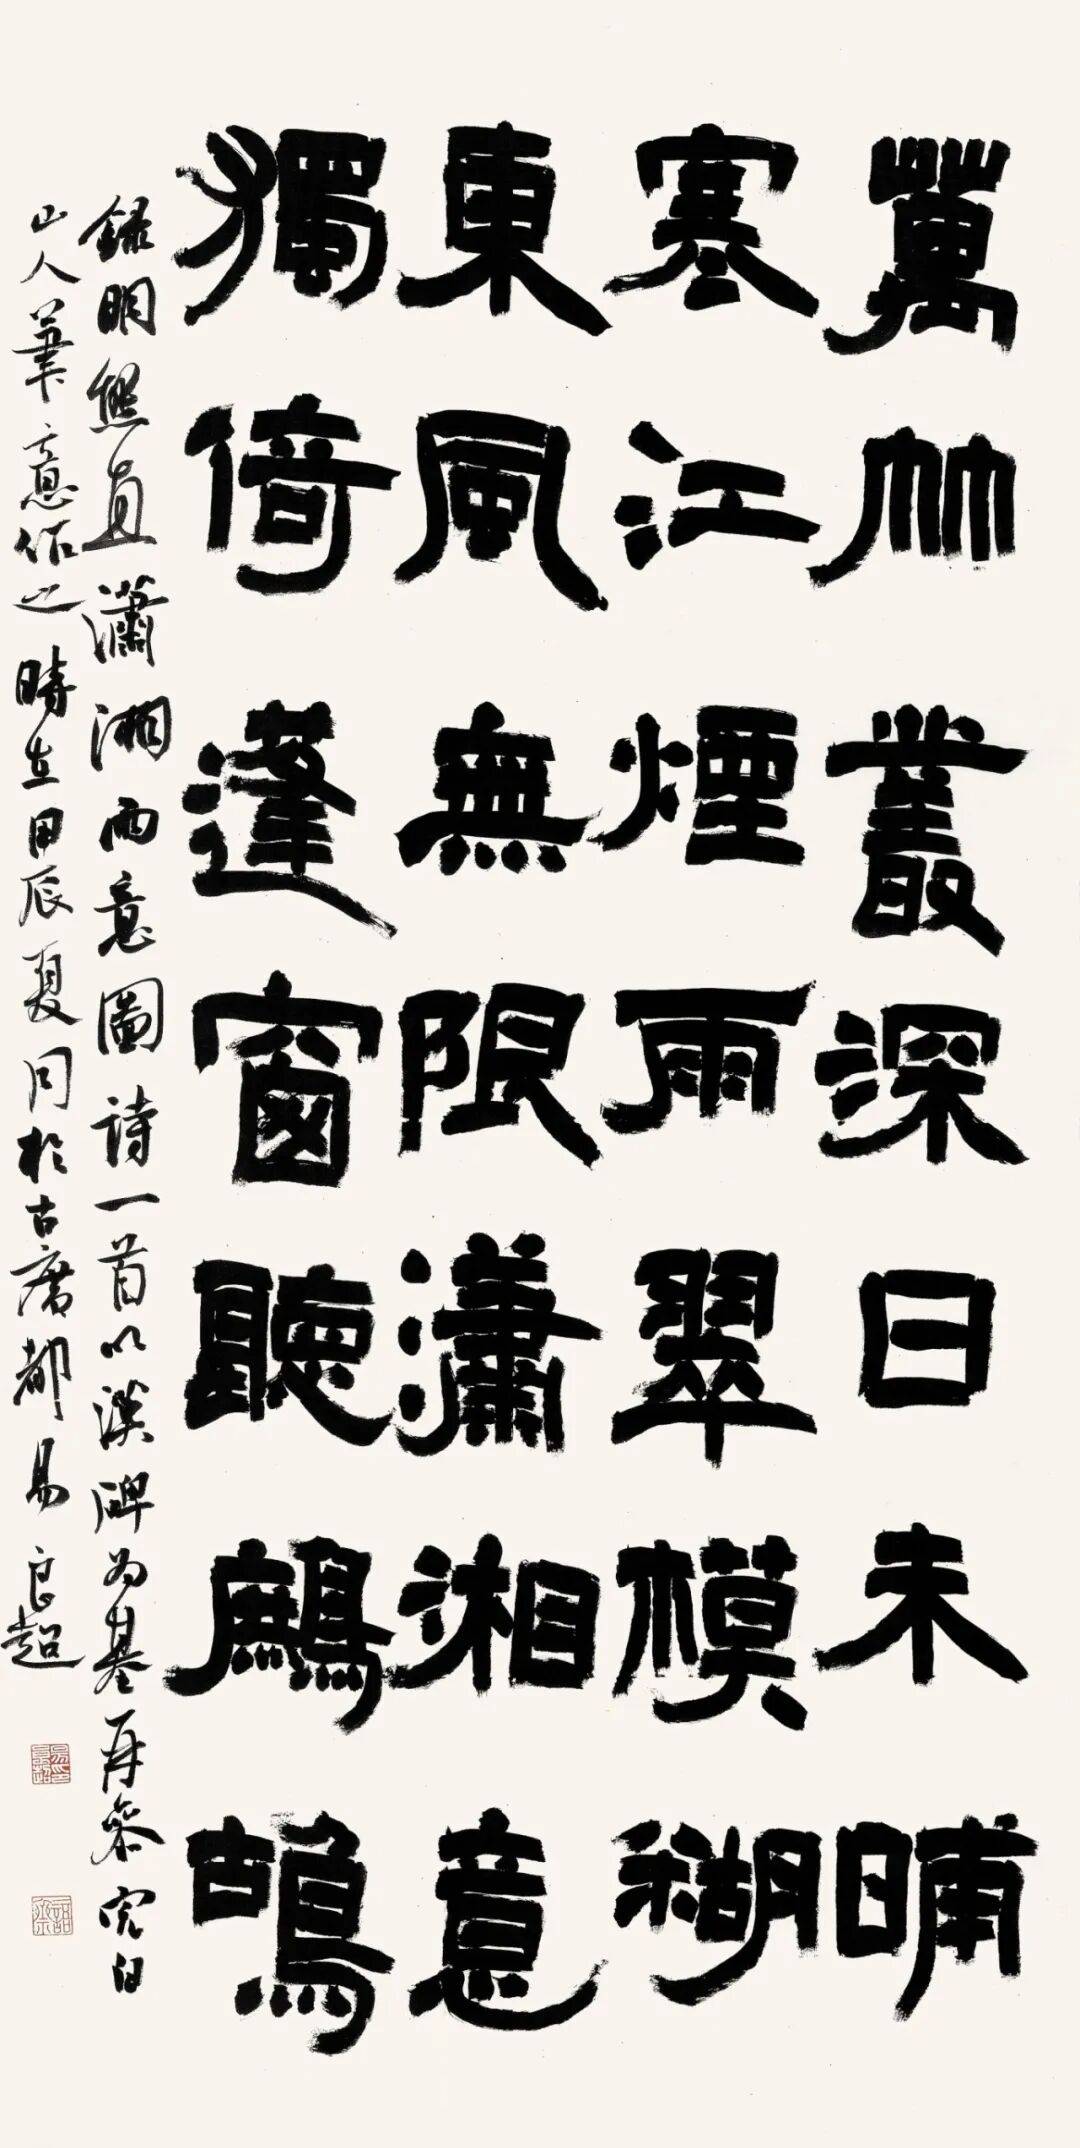 萬竹叢深日未晡
寒江煙雨翠模糊
東風無限瀟湘意
獨倚蓬窗聽鷓鴣
錄明熊直瀟湘雨意圖詩一首以漢碑為基再參完白
山人筆意作之時在甲辰夏月於古廣都易良超